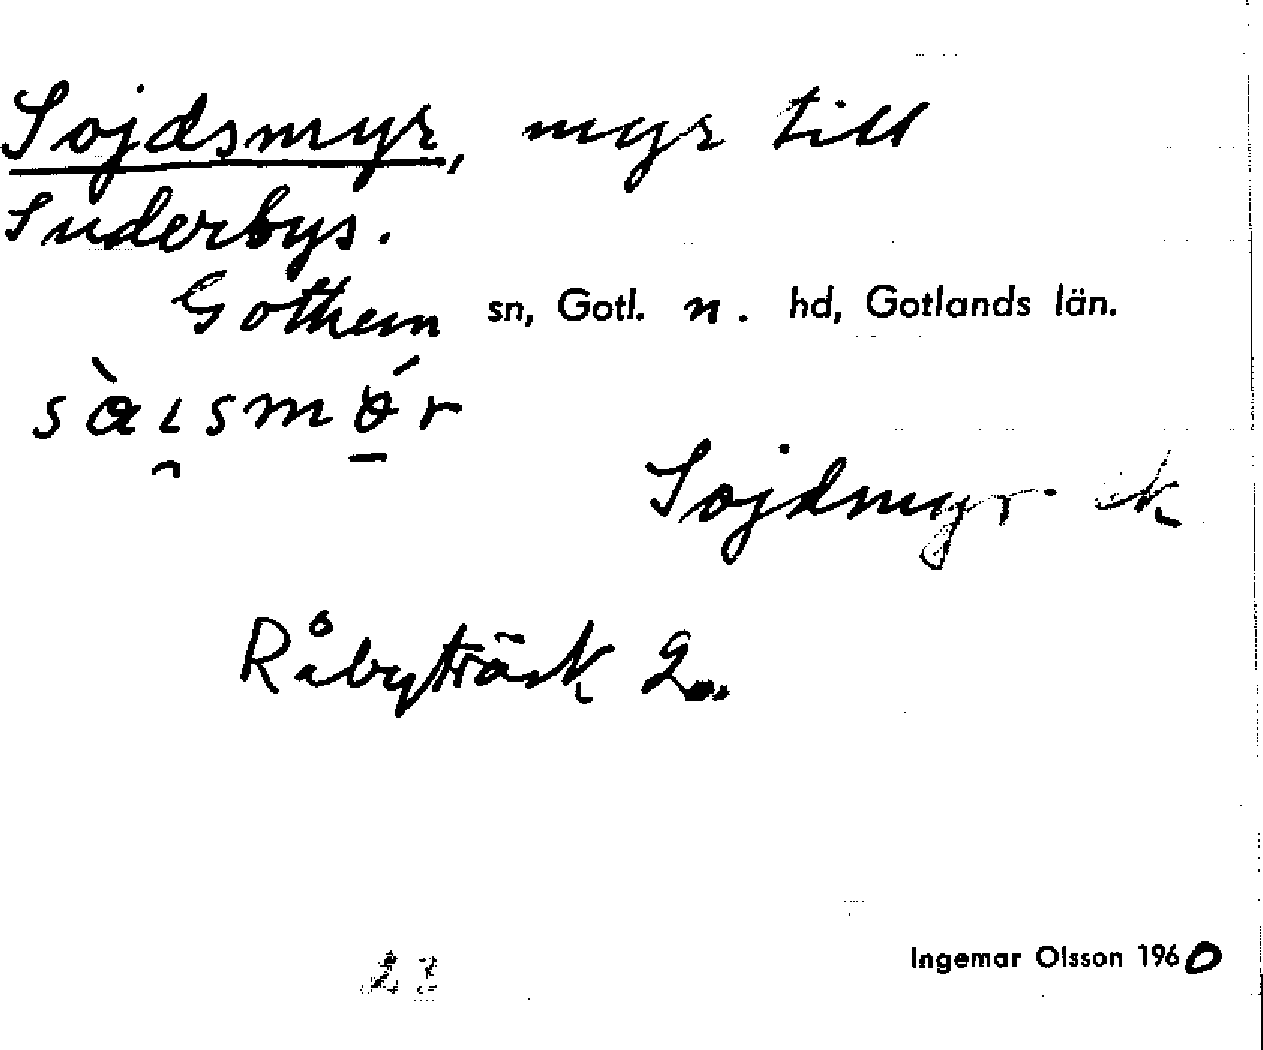 Sojdsmyr, myr till
Suderbys.
Gothem sn, Gotl. n. hd, Gotlands län.
sàı̯smǿ̲r
Sojdmyr ek
Råbyträsk 2a.
23
Ingemar Olsson 1960